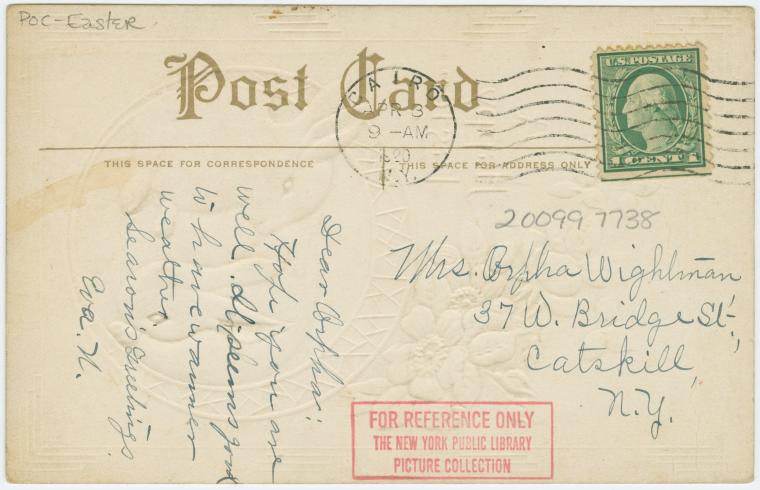 POC-Easter
Post Card
CAIRO
APR 3
9-AM
1920
N.Y.
U.S. POSTAGE
1 CENT 1
THIS SPACE FOR CORRESPONDENCE
THIS SPACE FOR ADDRESS ONLY
20099 7738
Dear Orpha:
Hope you are
well. It seems good
to have warmer
weather.
Season's Greetings.
Eva. N.
Mrs. Orpha Wightman
37 W. Bridge St.,
Catskill,
N.Y.
FOR REFERENCE ONLY
THE NEW YORK PUBLIC LIBRARY
PICTURE COLLECTION